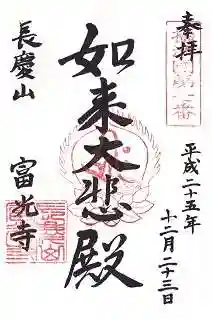 奉拝
平成二十五年
十二月二十三日
如来大悲殿
長慶山
富光寺